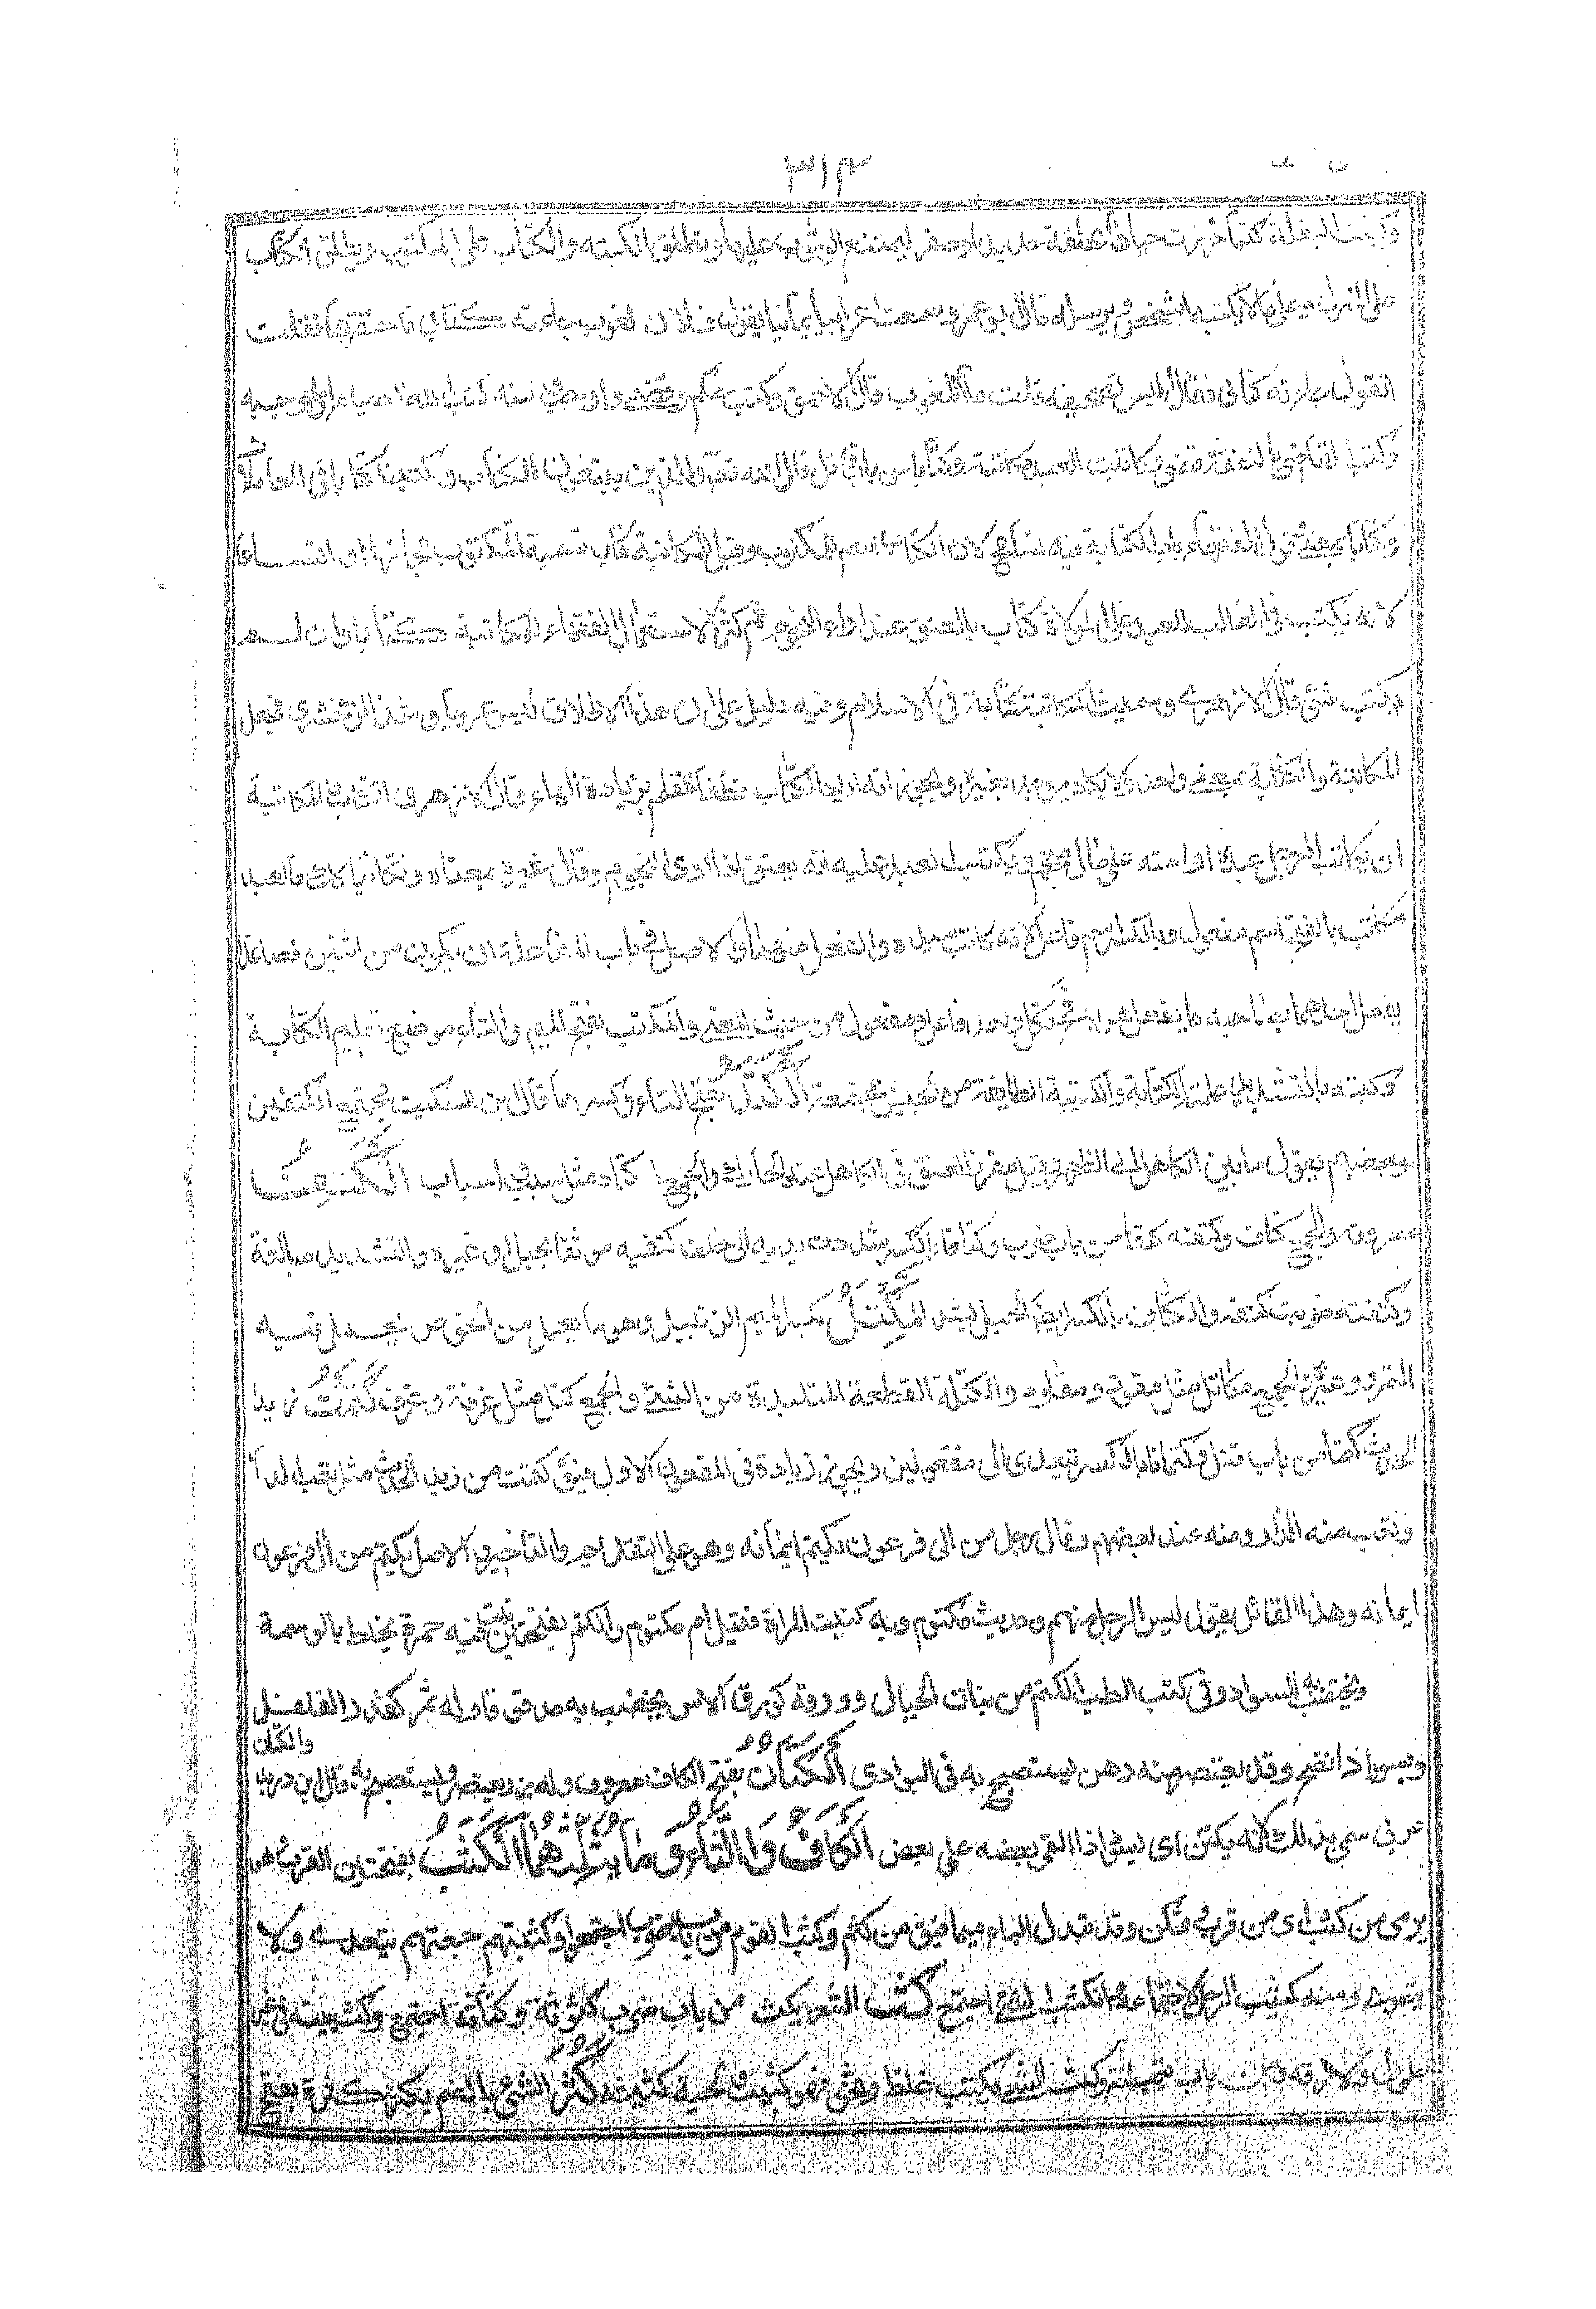 ٣١٤
وكتبت البغلة كتبا خرزت حياها بحلقة حديد او صفر ليمتنع الوثوب عليها وتطلق الكتبة والكتاب على المكتوب ويطلق الكتاب
على المنزل وعلى ما يكتبه الشخص ويرسله قال ابو عمرو سمعت اعرابيا يمانيا يقول فلان لغوب جاءته كتابى فاحتقرها فقلت
اتقول جاءته كتابى فقال اليس بصحيفة قلت ما اللغوب قال الاحمق وكتب حكم وقضى واوجب ومنه كتب الله الصيام اى اوجبه
وكتب القاضى بالنفقة قضى وكاتبت العبد مكاتبة وكتابا من باب قاتل قال الله تع والذين يبتغون الكتاب وكتبنا كتابا فى المعاملات
وكتابا بمعنى وقول الفقهاء باب الكتابة فيه تسامح لان الكتابة اسم المكتوب وقيل للمكاتبة كتابة تسمية باسم المكتوب مجازا واتساعا
لانه يكتب فى الغالب للعبد على المولى كتاب بالعتق عند اداء النجوم ثم كثر الاستعمال حتى قال الفقهاء للمكاتبة كتابة وان لم
يكتب شئ قال الازهرى وسميت المكاتبة كتابة فى الاسلام وفيه دليل على ان هذا الاطلاق ليس عربيا وشذ الزمخشرى فجعل
المكاتبة والكتابة بمعنى واحد ولا يكاد يوجد لغيره ويجوز انه اراد الكتاب فطغا القلم بزيادة الهاء قال الازهرى الكتاب والمكاتبة
ان يكاتب الرجل عبده او امته على مال منجم ويكتب العبد عليه انه يعتق اذا ادى النجوم وقال غيره بمعناه وتكاتبا كذلك فالعبد
مكاتب بالفتح اسم مفعول وبالكسر اسم فاعل لانه كاتب سيده والفعل منهما والاصل فى باب المفاعلة ان يكون من اثنين فصاعدا
يفعل احدهما بصاحبه ما يفعل هو به فكل واحد فاعل ومفعول من حيث المعنى والمكتب بفتح الميم والتاء موضع تعليم الكتابة
وكتبته بالتشديد علمته الكتابة والكتيبة الطايفة من الجيش مجتمعة الكتد بفتح التاء وكسرها قال ابن السكيت مجتمع الكتفين
وبعضهم يقول ما بين الكاهل الى الظهر وقيل مغرز العنق فى الكاهل عند الحارك والجمع اكتاد مثل سبب واسباب الكتف
معروفة والجمع كتاف وكتفته كتفا من باب ضرب وكتافا بالكسر شددت يديه الى خلف كتفيه موثقا بحبل او غيره والتشديد مبالغة
وكتفته ضربت كتفه والكتاف بالكسر ايضا الحبل يشد المكتل بكسر الميم الزنبيل وهو ما يعمل من الخوص يحمل فيه
التمر وغيره والجمع مكاتل مثل مقود ومقاود والكتلة القطعة المتلبدة من الشئ والجمع كتل مثل غرفة وغرف كتمت زيدا
الحديث كتما من باب قتل وكتمانا بالكسر يتعدى الى مفعولين ويجوز زيادة من فى المفعول الاول فيق كتمت من زيد الحديث مثل بعته الدار
وبعت منه الدار ومنه عند بعضهم وقال رجل من ال فرعون يكتم ايمانه وهو على التقديم والتاخير والاصل يكتم من ال فرعون
ايمانه وهذا القائل يقول ليس الرجل منهم وحديث مكتوم وبه كنيت المراة فقيل ام مكتوم والكتم بفتحتين نبت فيه حمرة يخلط بالوسمة
ويختضب به للسواد وفى كتب الطب الكتم من نبات الجبال وورقه كورق الاس يخضب به مدقوقا وله ثمر كقدر الفلفل
ويسود اذا نضج وقد يعتصر منه دهن يستصبح به فى البوادى الكتان بفتح الكاف معروف وله بزر يعتصر ويستصبح به قال ابن دريد والكتان
عربى سمى بذلك لانه يكتن اى يسود اذا القى بعضه على بعض الكاف والثاء وما يثلثهما الكثب بفتحتين القرب وهو
يرمى من كثب اى من قرب وتمكن وقد تبدل الباء ميما فيق من كثم وكثب القوم من باب ضرب اجتمعوا وكثبتهم جمعتهم يتعدى ولا
يتعدى ومنه كثيب الرمل لاجتماعه وانكثب الشئ اجتمع كث الشعر يكث من باب ضرب كثوثة وكثاثة اجتمع وكثر نبته فى غير
طول ولا رقة ومن باب تعب لغة وكث الشئ يكث غلظ وثخن فهو كثيث ولحية كثيثة كثر الشئ بالضم يكثر كثرة بفتح